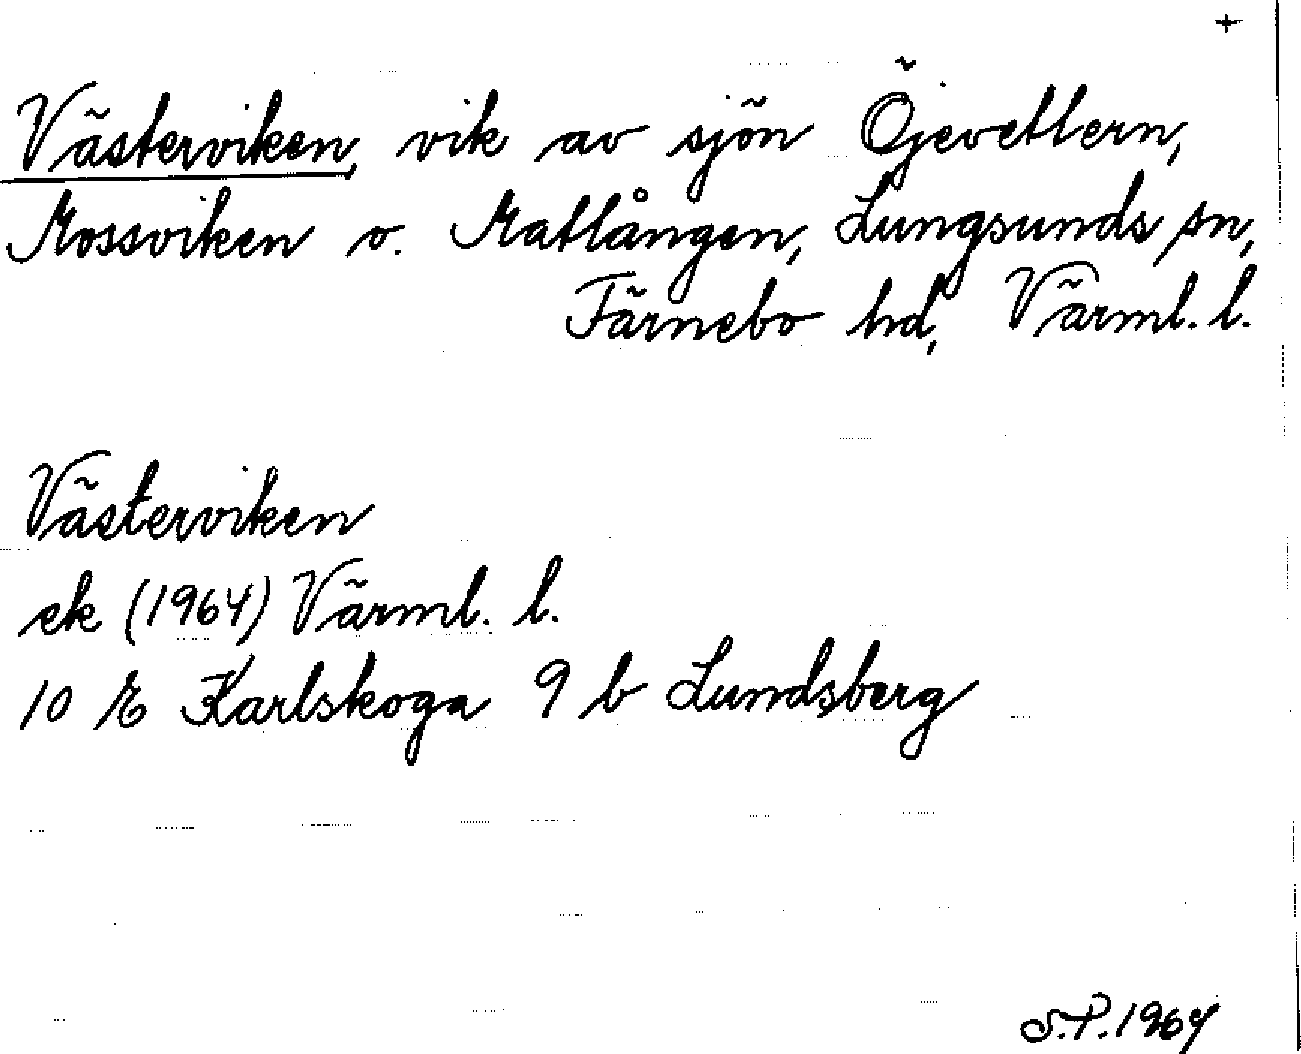 +
Västerviken, vik av sjön Öjevettern,
Mossviken o. Matlången, Lungsunds sn,
Färnebo hd, Värml. l.
Västerviken
ek (1964) Värml. l.
10 E Karlskoga 9 b Lundsberg
S.P. 1964